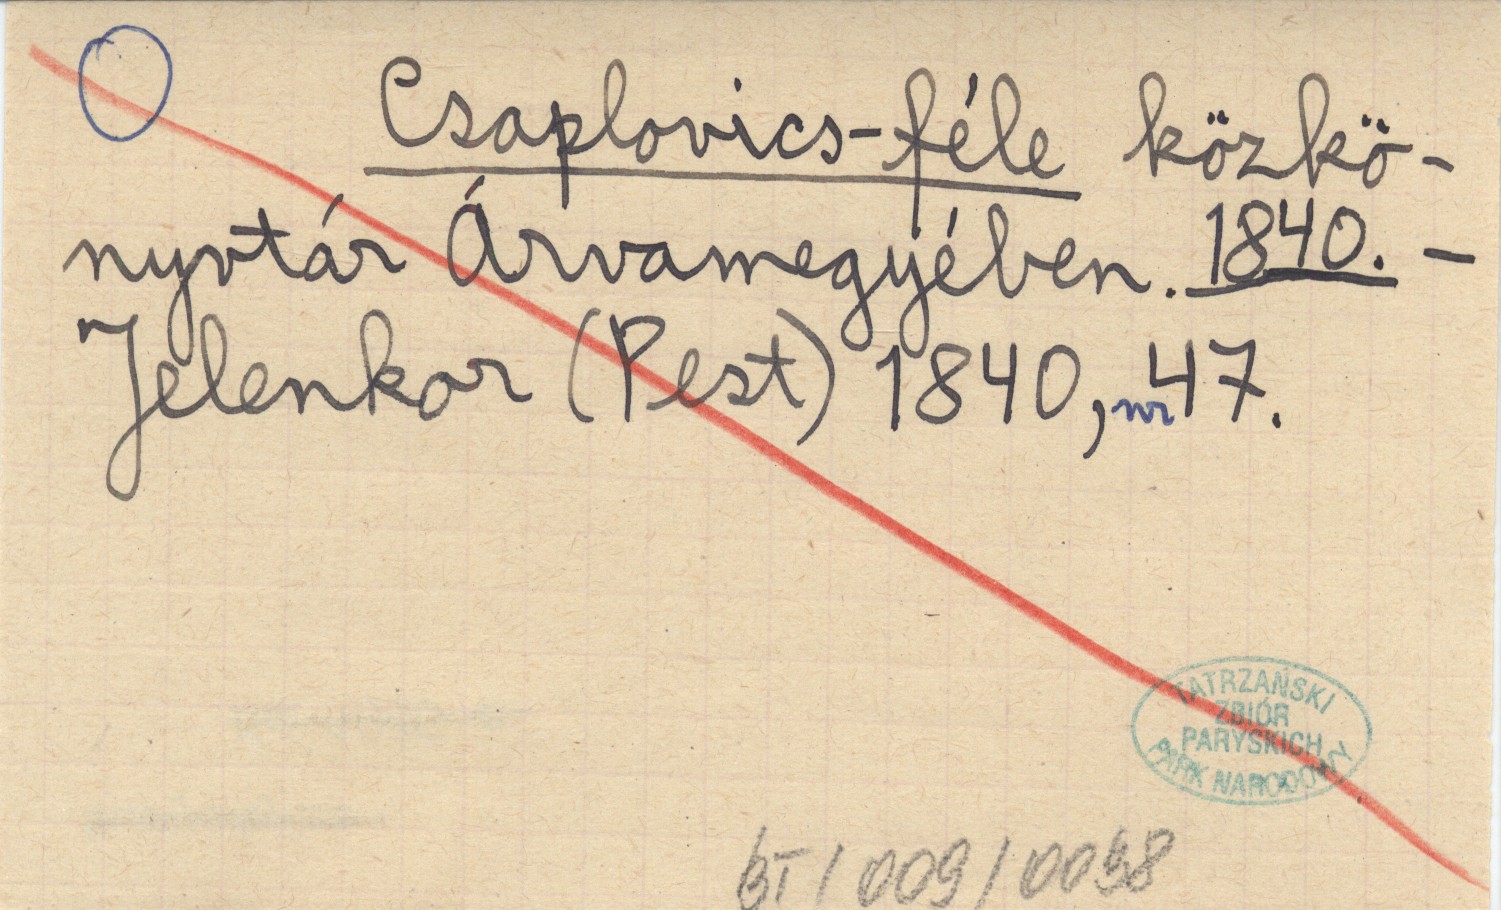 Csaplovics-féle közkö-
nyvtár Árvamegyében. 1840. -
Jelenkor (Pest) 1840, nr 47.
TATRZAŃSKI
ZBIÓR
PARYSKICH
PARK NARODOWY
BT/009/0038